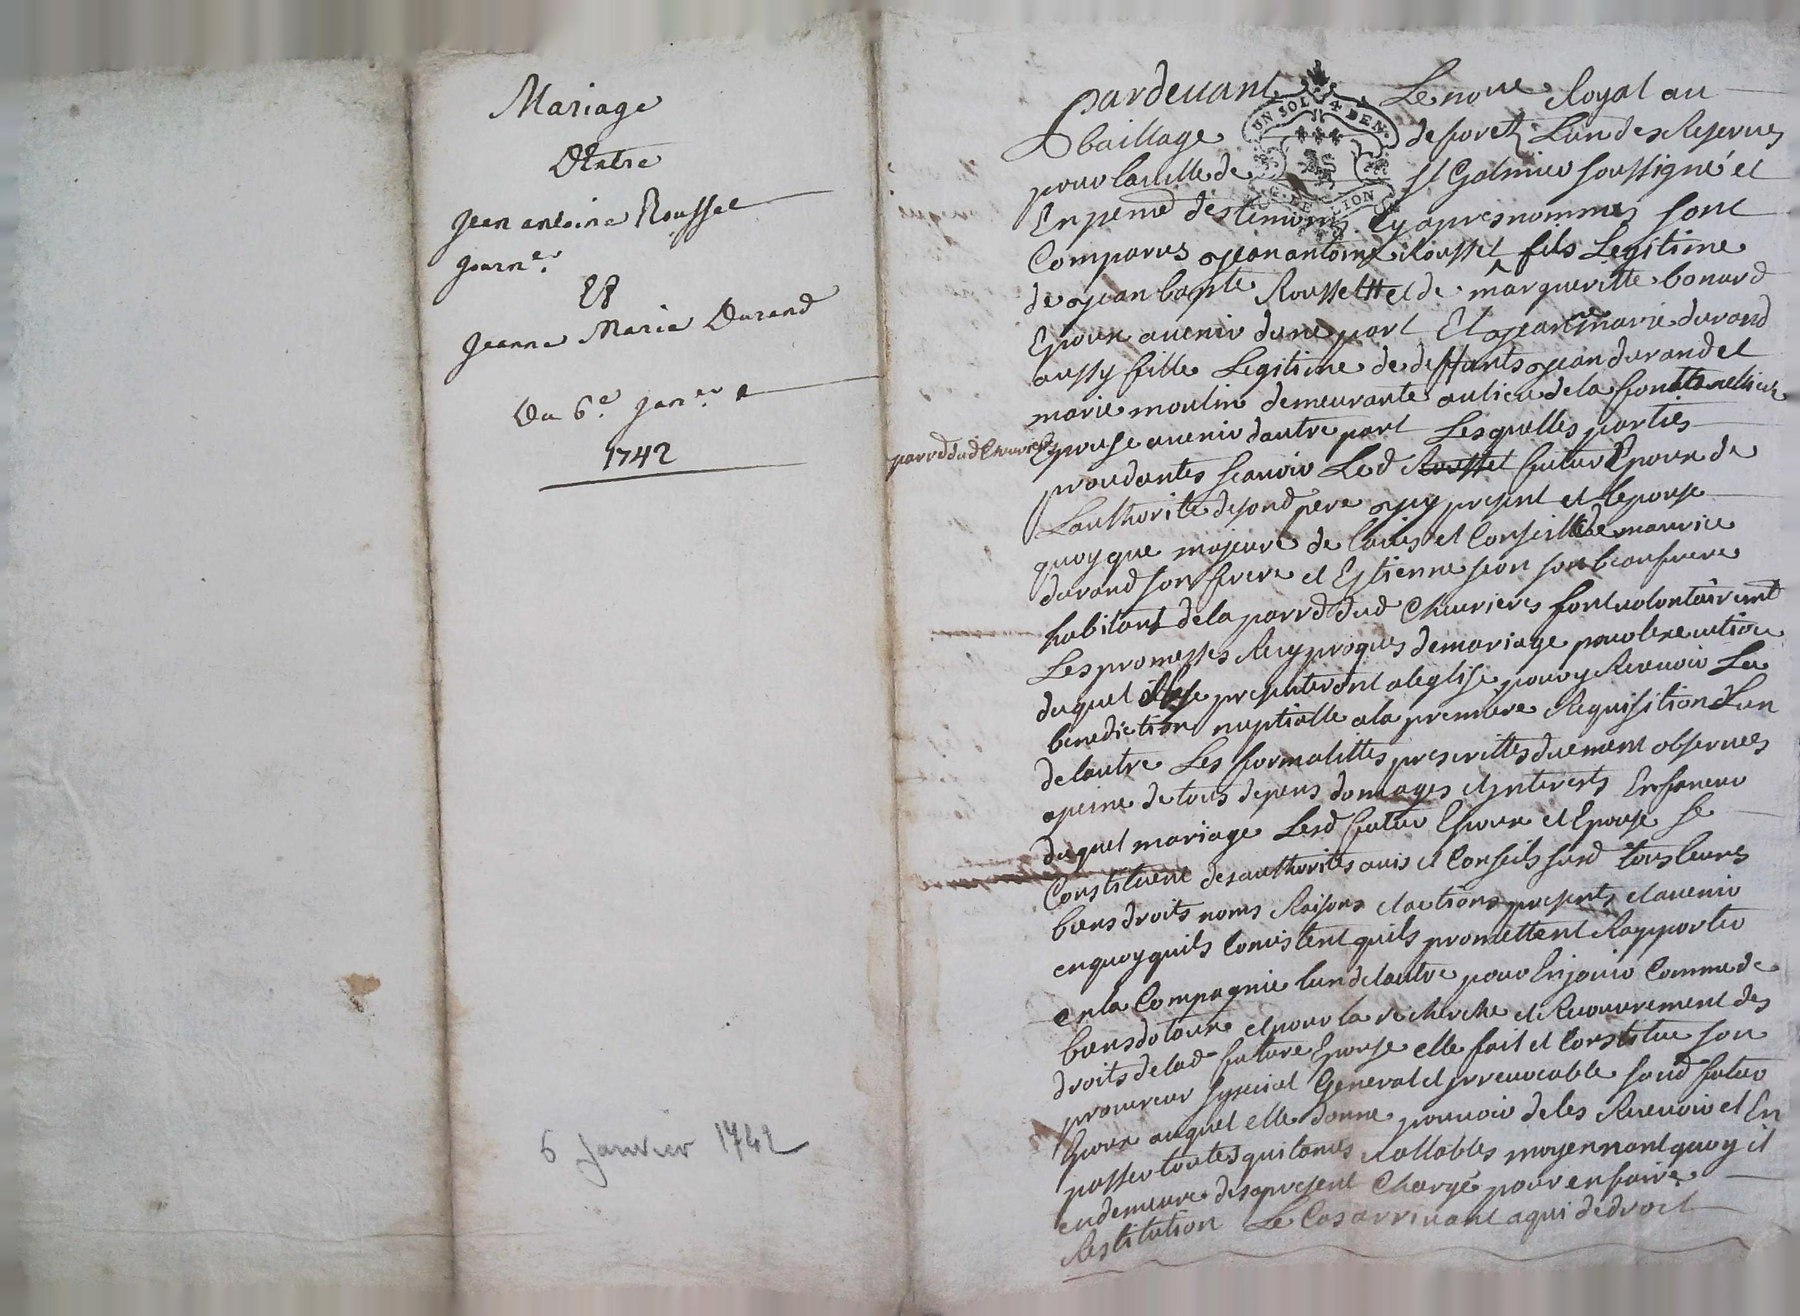 Mariage
D'Entre
Jean antoine Roussel
Journer.
Et
Jeanne Marie Durand
Du 6e. janer
1742
6 Janvier 1742
Pardevant Le nore Royal au
bailliage de foretz Lun des Reservés
pour la ville de St Galmier soussigné et
UN SOL 4 DEN.
G. DE LION
En pence des temoins Cy apres nommés sont
Comparus Jean antoine Roussel fils Legitime
de Jean bapte Roussel et de margueritte bonard
Epoux avenir dune part Et Jeanne marie durand
aussy fille Legitime de deffunts Jean durand et
marie moulin demeurante au lieu de la
parr d dud Chevrieres
Epouse avenir dautre part Lesquelles parties
procedantes scavoir Led Roussel futur Epoux de
Lauthorité desond pere icy present et Lepouse
quoyque majeure de lavis et Conseille de maurice
durand son frere et Estienne jean son beaufrere
habitant de la parr d dud Chevrieres font volontairemt
Les promesses Recyproques de mariage pour lexecution
duquel ils se presenteront a leglise pour y Recevoir La
benediction nuptialle a la premiere Requisition Lun
de lautre Les formalittés prescrittes duement observées
a peine de tous depens domages et Interets En faveur
duquel mariage Lesd futur Epoux et Epouse se
Constituent des authorités avis et Conseils susd tous leurs
biens droits noms Raisons et actions presents et avenir
en quoy quils Consistent quils promettent Rapporter
en la Compagnie lun de lautre pour En jouir Comme de
biens dotaux et pour la recherche et Recouvrement des
droits de lad future Epouse elle fait et Constitue son
procureur special General et irrevocable sond futur
Epoux auquel elle donne pouvoir de les Recevoir et En
passer toutes quitances vallables moyennant quoy il
en demeure des apresent Chargé pour en faire
Restitution Le Cas arrivant a qui de droit